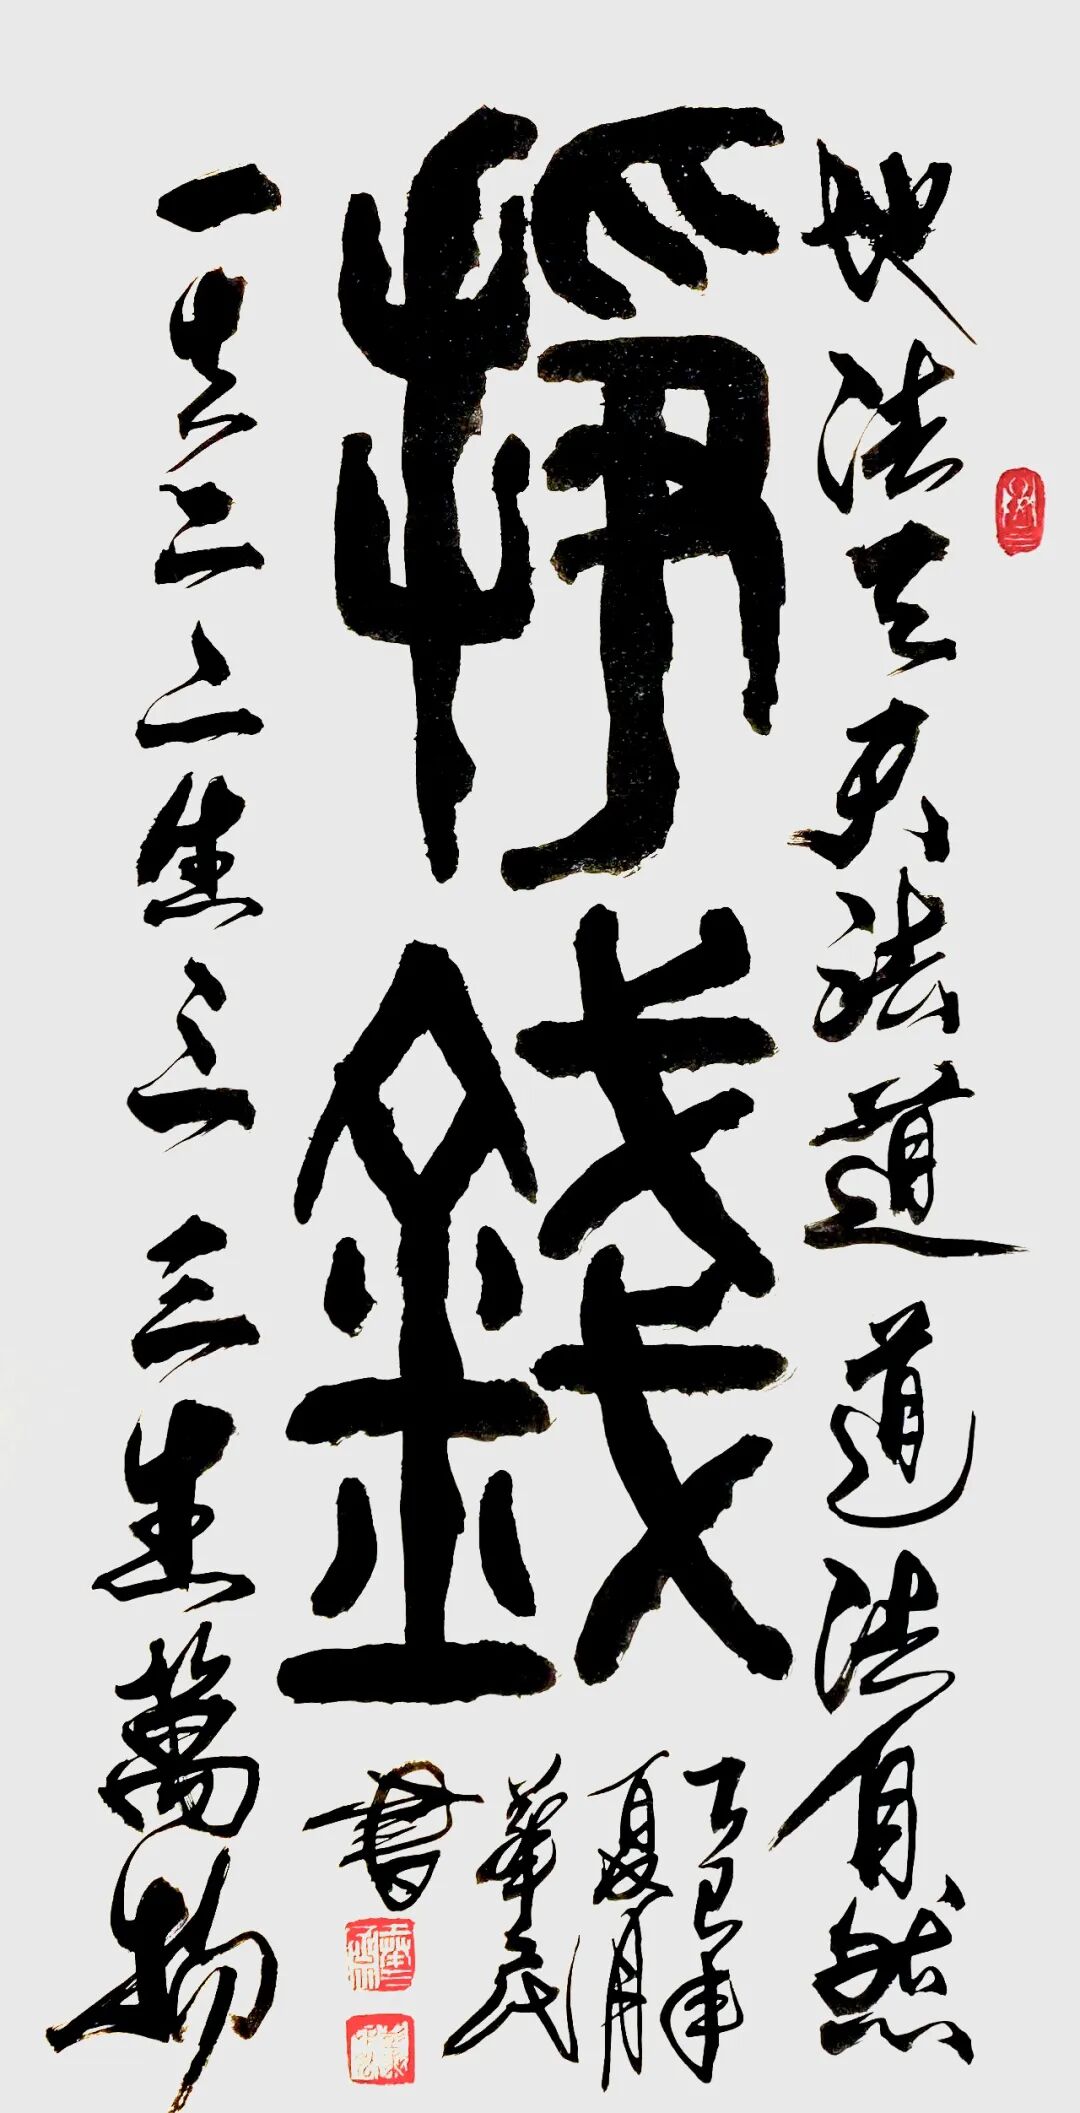 地法天天法道道法自然
掙錢
一生二二生三三生萬物
乙巳年
夏月
華
書